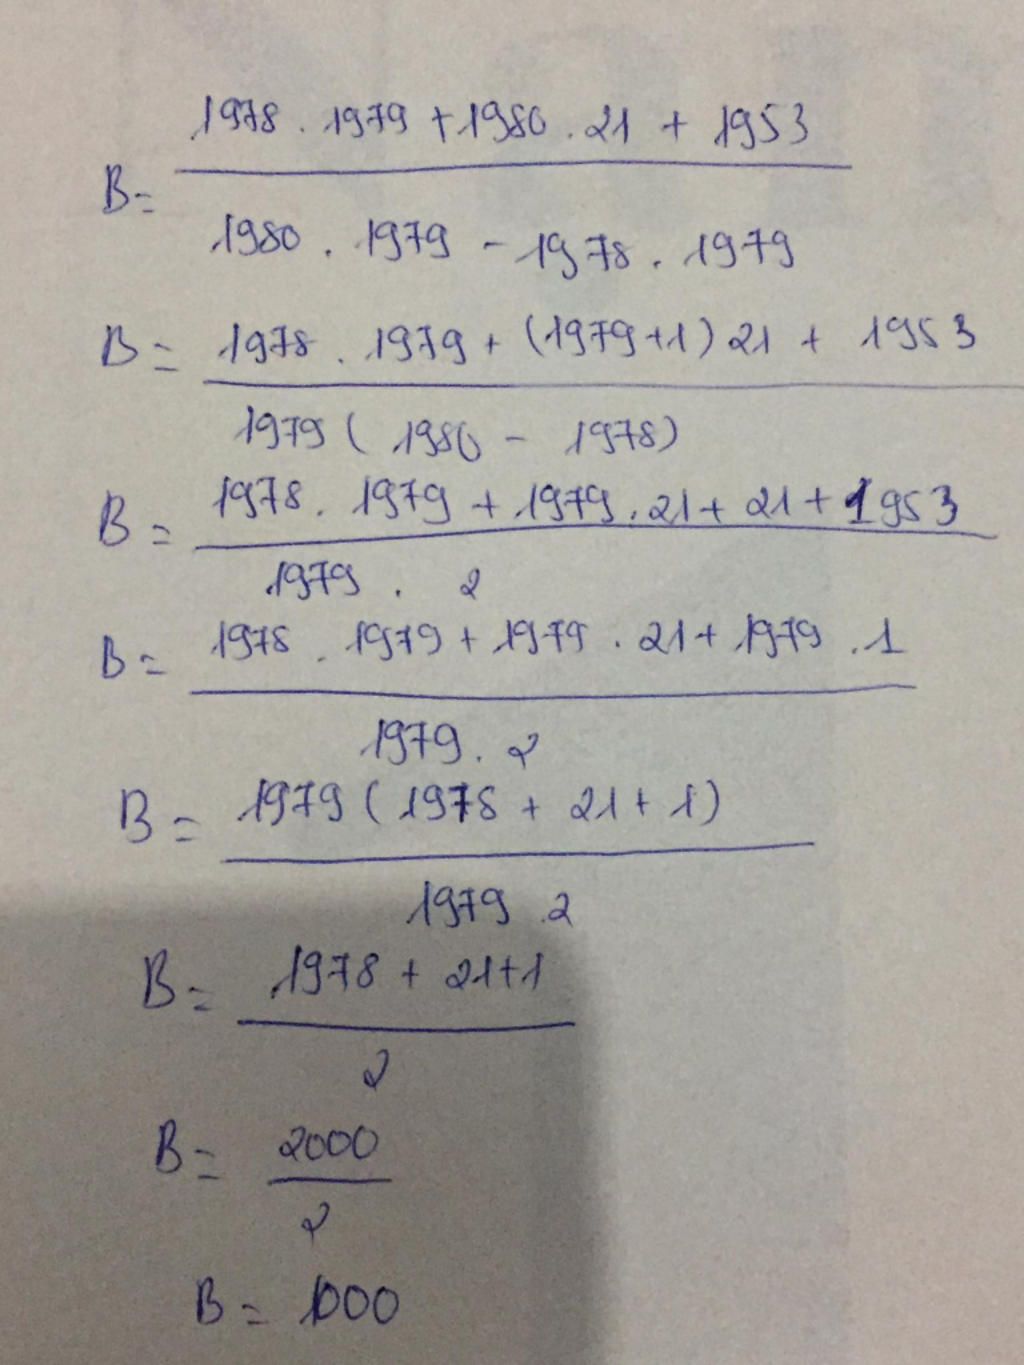 1978 . 1979 + 1980 . 21 + 1953
B =
1980 . 1979 - 1978 . 1979
B = 1978 . 1979 + (1979+1) 21 + 1953
1979 ( 1980 - 1978)
B = 1978 . 1979 + 1979 . 21 + 21 + 1953
1979 . 2
B = 1978 . 1979 + 1979 . 21 + 1979 . 1
1979 . 2
B = 1979 ( 1978 + 21 + 1)
1979 . 2
B = 1978 + 21+1
2
B = 2000
2
B = 1000